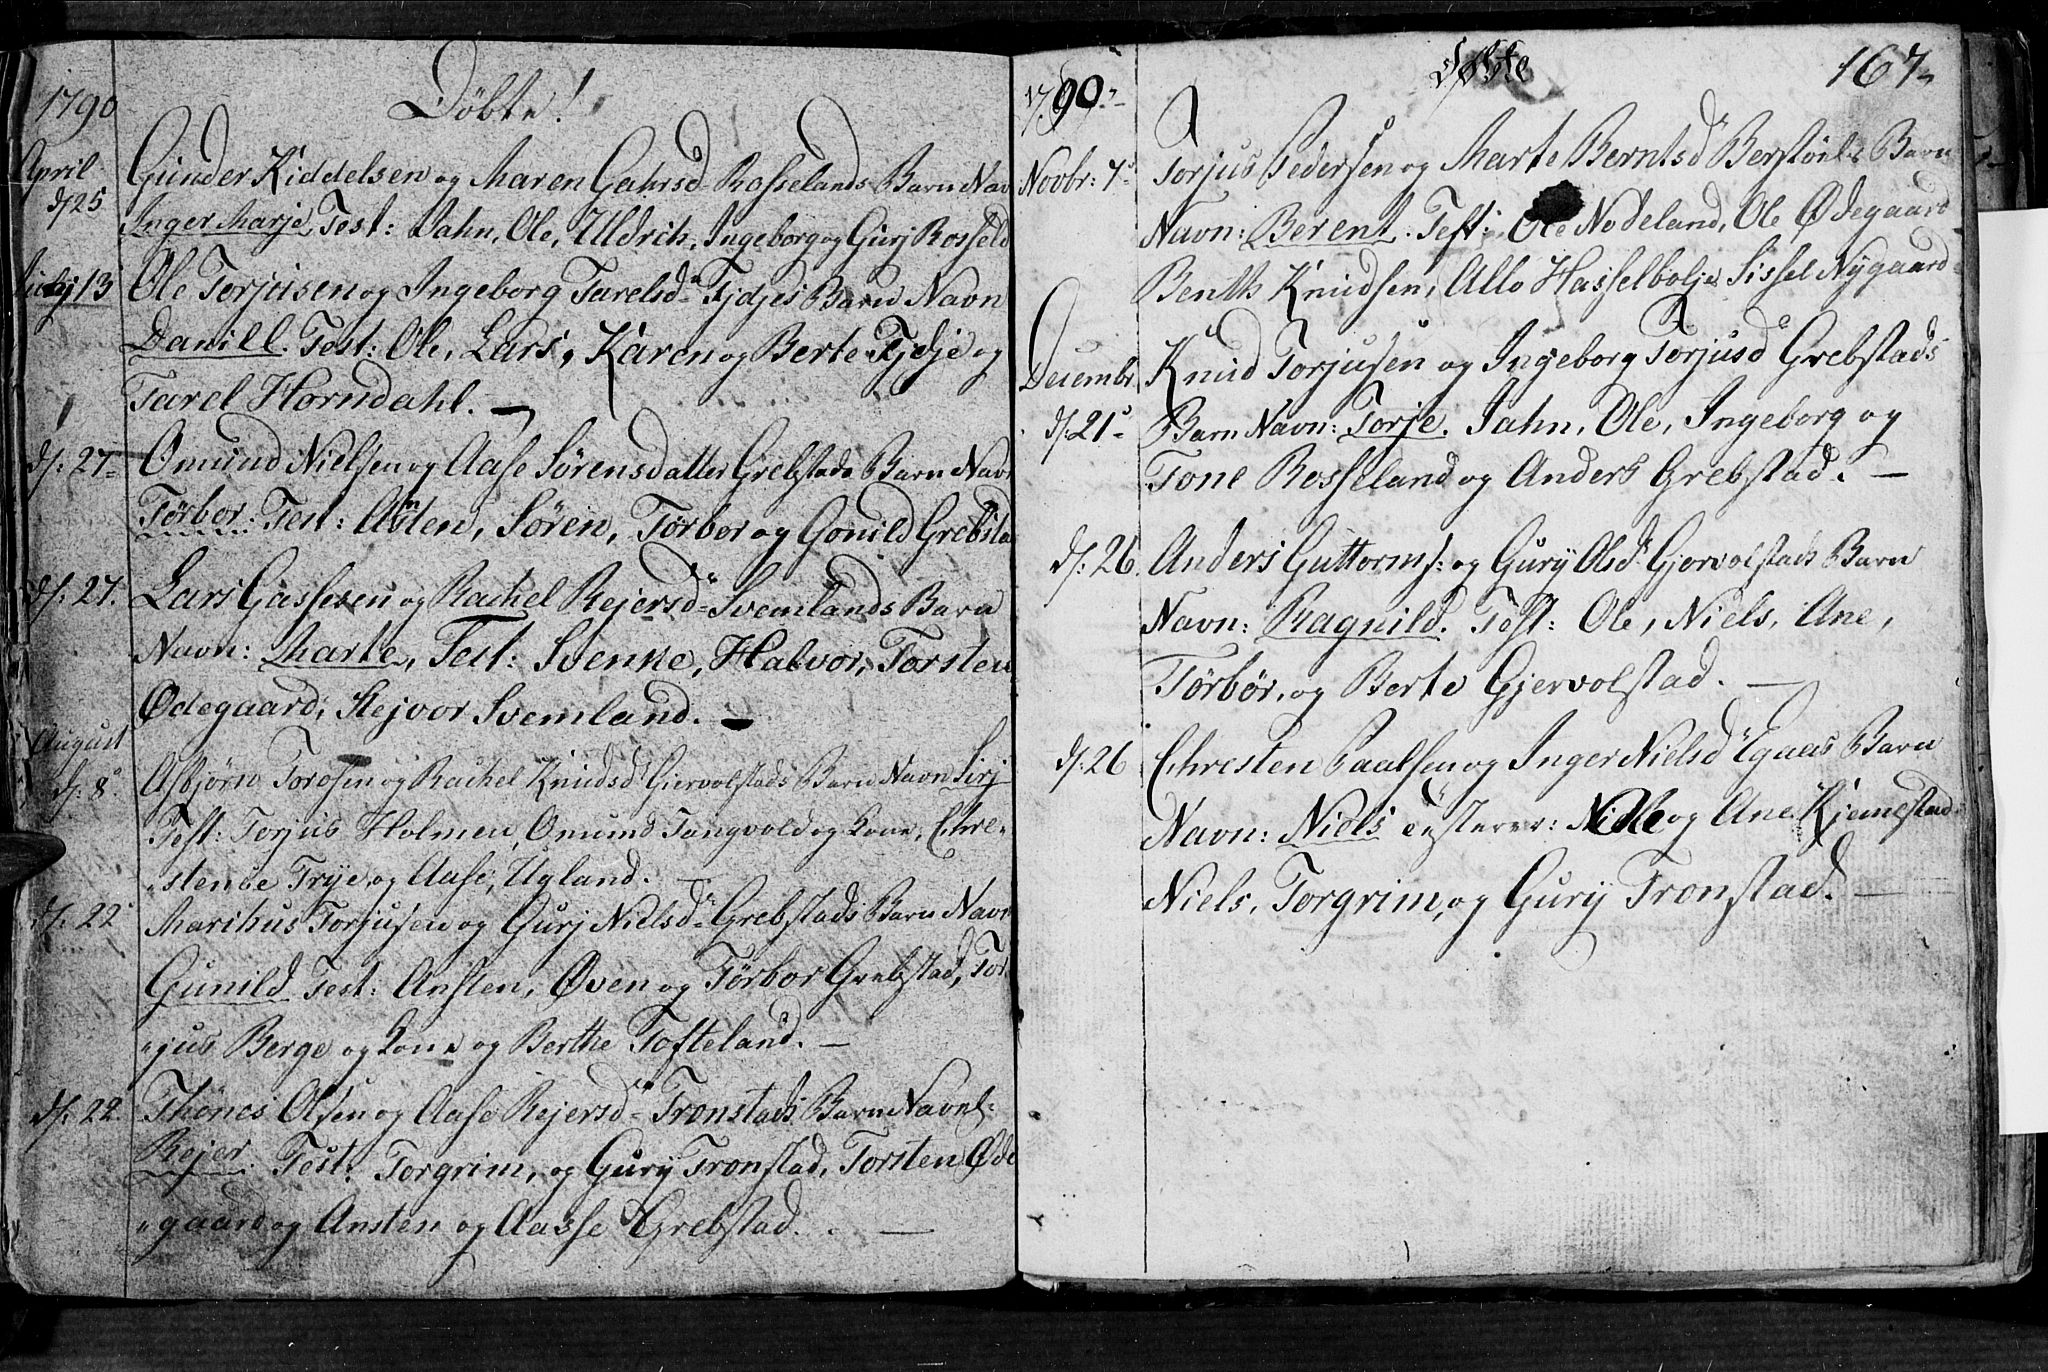 1790
Döbte!
April
d 25
Gunder Kiddelsen og Maren Gahrsd Rosselands Barn Nav
Inger Marje, Test: Jahn, Ole, Uldrik, Ingeborg og Gurj Rosseld
July 13
Ole Torjusen og Ingeborg Tarelsd Fjdjes Barn Navn
Daniell. Test: Ole, Lars, Karen og Berte Fjdje og
Tarel Horndahl.
d: 27
Omund Nielsen og Aase Sørensdatter Grebstads Barn Navn
Törbor: Test: Ansten, Sören, Törbor og Gonild Grebsta
d: 27.
Lars Gassesen og Rachel Rejersd Svemlands Barn
Navn: Marte, Test: Svenke, Halvor, Torsten
Ødegaard, Stejvor Svemland.
August
d: 8
Asbjørn Torosen og Rachel Knudsd Giervolstads Barn Navn Sirj
Test: Torjus Holmen, Omund Tangvold og kone, Chre-
stense Trye og Aase, Ugland.
d: 22
Marthus Torjusen og Gurj Nielsd Grebstads Barn Navn
Gunild Test: Ansten, Øven og Törbor Grebstad, Tor
"jus Berge og kone og Berthe Tofteland.
d: 22.
Thönes Olsen og Aase Rejersd Tronstads Barn Navnl:
Rejer. Test. Torgrim, og Gurij Tronstad, Torsten Øde
"gaard og Ansten og Aasse Grebstad.
1790.
Døbte
167
Novbr: 7
Torjus Pedersen og Marte Berntsd Berstöels Barn
Navn: Berent. Test: Ole Nodeland, Ole Ødegaard
Benth Knudsen, Allo Hasselbolje Sissel Nygaard
Decembr
d: 21
Knud Torjusen og Ingeborg Torjusd Grebstads
Barn Navn: Torje. Jahn, Ole, Ingeborg og
Tone Rosseland og Anders Grebstad.
d: 26.
Anders Guttorms: og Gury Olsd Gjervolstads Barn
Navn: Ragnild. Test: Ole, Niels, Ane,
Törbör, og Berte Gjervolstad.
d: 26
Christen Paalsen og Inger Nielsd Egaas Barn
Navn: Niels Ole og Ane Kjennestad
Niels, Torgrim, og Gurij Tronstad.